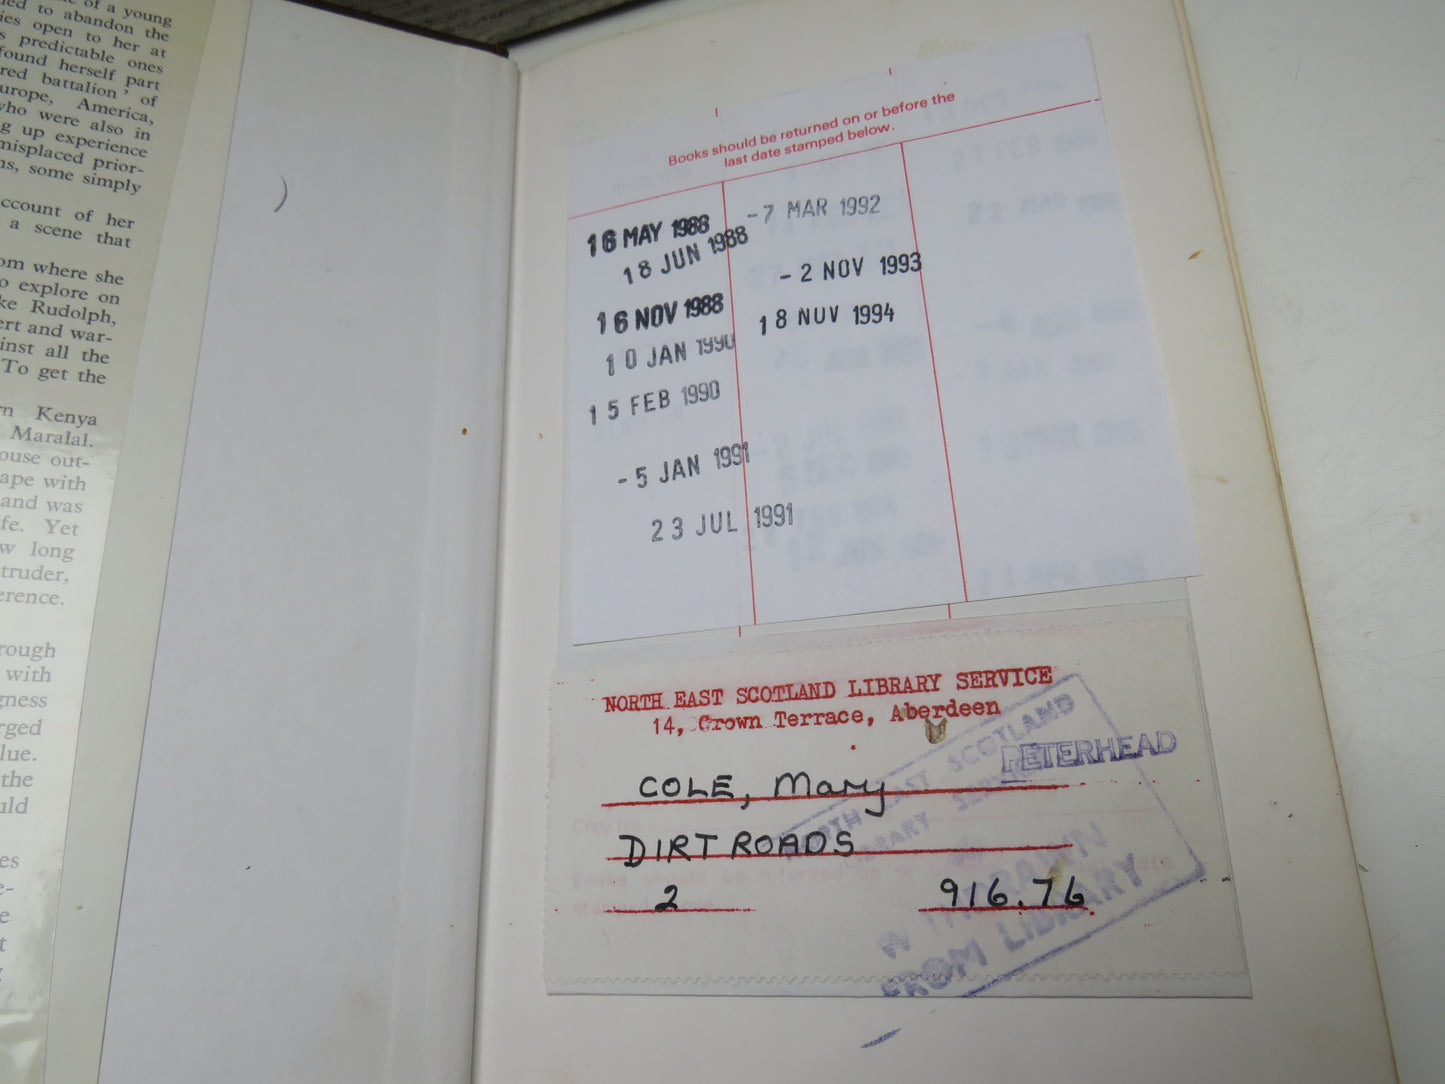 of a young
to abandon the
ies open to her at
s predictable ones
found herself part
red battalion' of
urope, America,
who were also in
g up experience
misplaced prior-
ns, some simply
ccount of her
a scene that
om where she
o explore on
ke Rudolph,
ert and war-
inst all the
To get the
rn Kenya
Maralal.
ouse out-
ape with
and was
fe. Yet
w long
truder,
erence.
rough
with
gness
rged
lue.
the
uld
es
e-
e
t
)
Books should be returned on or before the
last date stamped below.
16 MAY 1988
18 JUN 1988
16 NOV 1988
10 JAN 1990
15 FEB 1990
- 5 JAN 1991
23 JUL 1991
- 7 MAR 1992
- 2 NOV 1993
18 NOV 1994
NORTH EAST SCOTLAND LIBRARY SERVICE
14, Crown Terrace, Aberdeen
PETERHEAD
COLE, Mary
DIRT ROADS
2 916.76
NORTH EAST SCOTLAND
LIBRARY SERVICE
WITHDRAWN
FROM LIBRARY